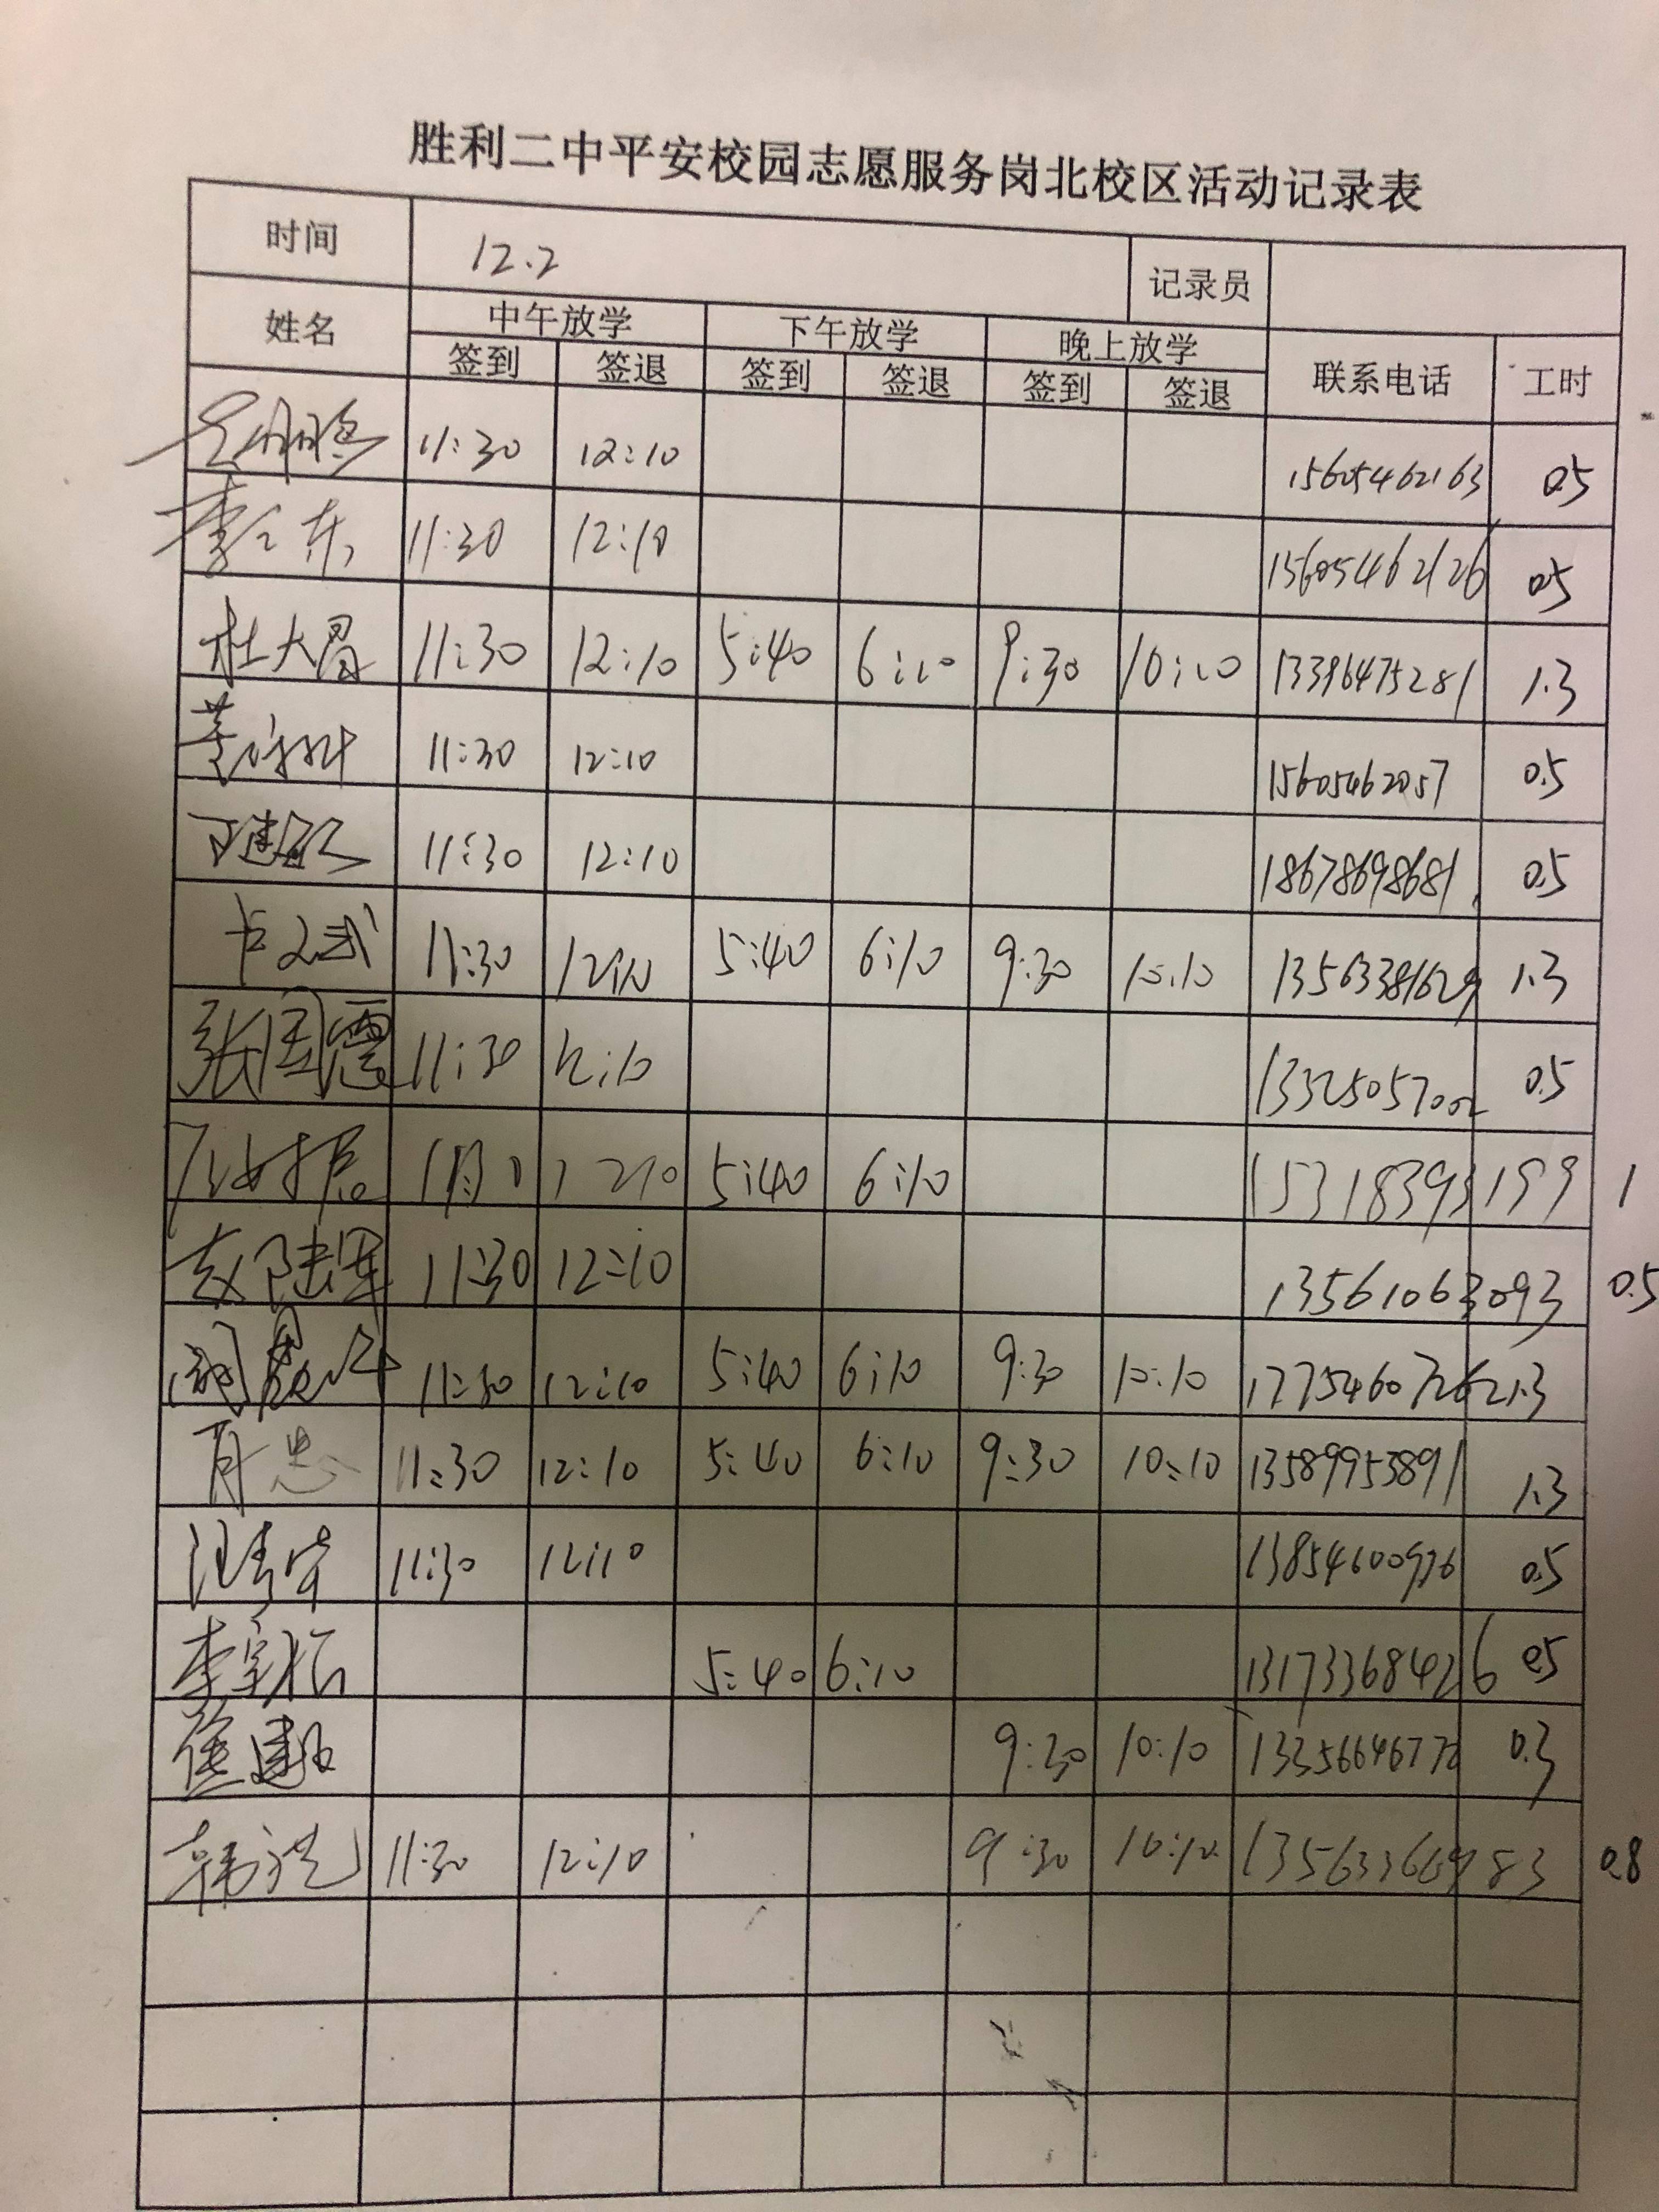 胜利二中平安校园志愿服务岗北校区活动记录表
时间 12.2 记录员
姓名 中午放学 下午放学 晚上放学 联系电话 工时
签到 签退 签到 签退 签到 签退
11:30 12:10 15605462163 0.5
11:30 12:10 15605462126 0.5
杜大昌 11:30 12:10 5:40 6:10 9:30 10:10 13396475281 1.3
11:30 12:10 15605462057 0.5
11:30 12:10 18678698681 0.5
卞文武 11:30 12:10 5:40 6:10 9:30 10:10 13563381629 1.3
张国震 11:30 12:10 13325057002 0.5
5:40 6:10 15318393199 1
赵陆军 11:30 12:10 13561063093 0.5
11:30 12:10 5:40 6:10 9:30 10:10 17754607262 1.3
11:30 12:10 5:40 6:10 9:30 10:10 13589953891 1.3
11:30 12:10 13854600936 0.5
李宝松 5:40 6:10 13173368426 0.5
9:30 10:10 0.3
韩 11:30 12:10 9:30 10:10 13563366983 0.8